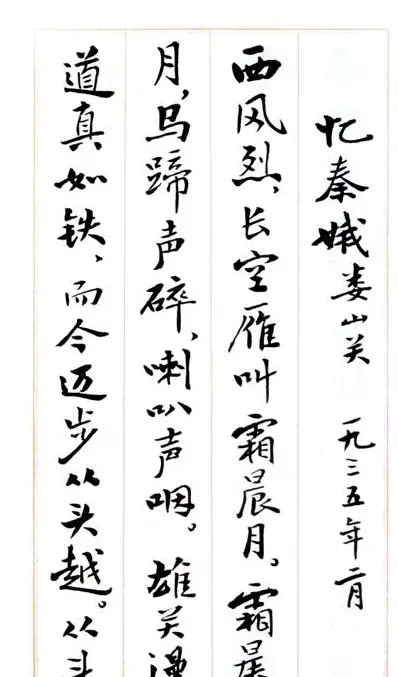 忆秦娥 娄山关 一九三五年二月
西风烈，长空雁叫霜晨月。霜晨
月，马蹄声碎，喇叭声咽。雄关漫
道真如铁，而今迈步从头越。从头